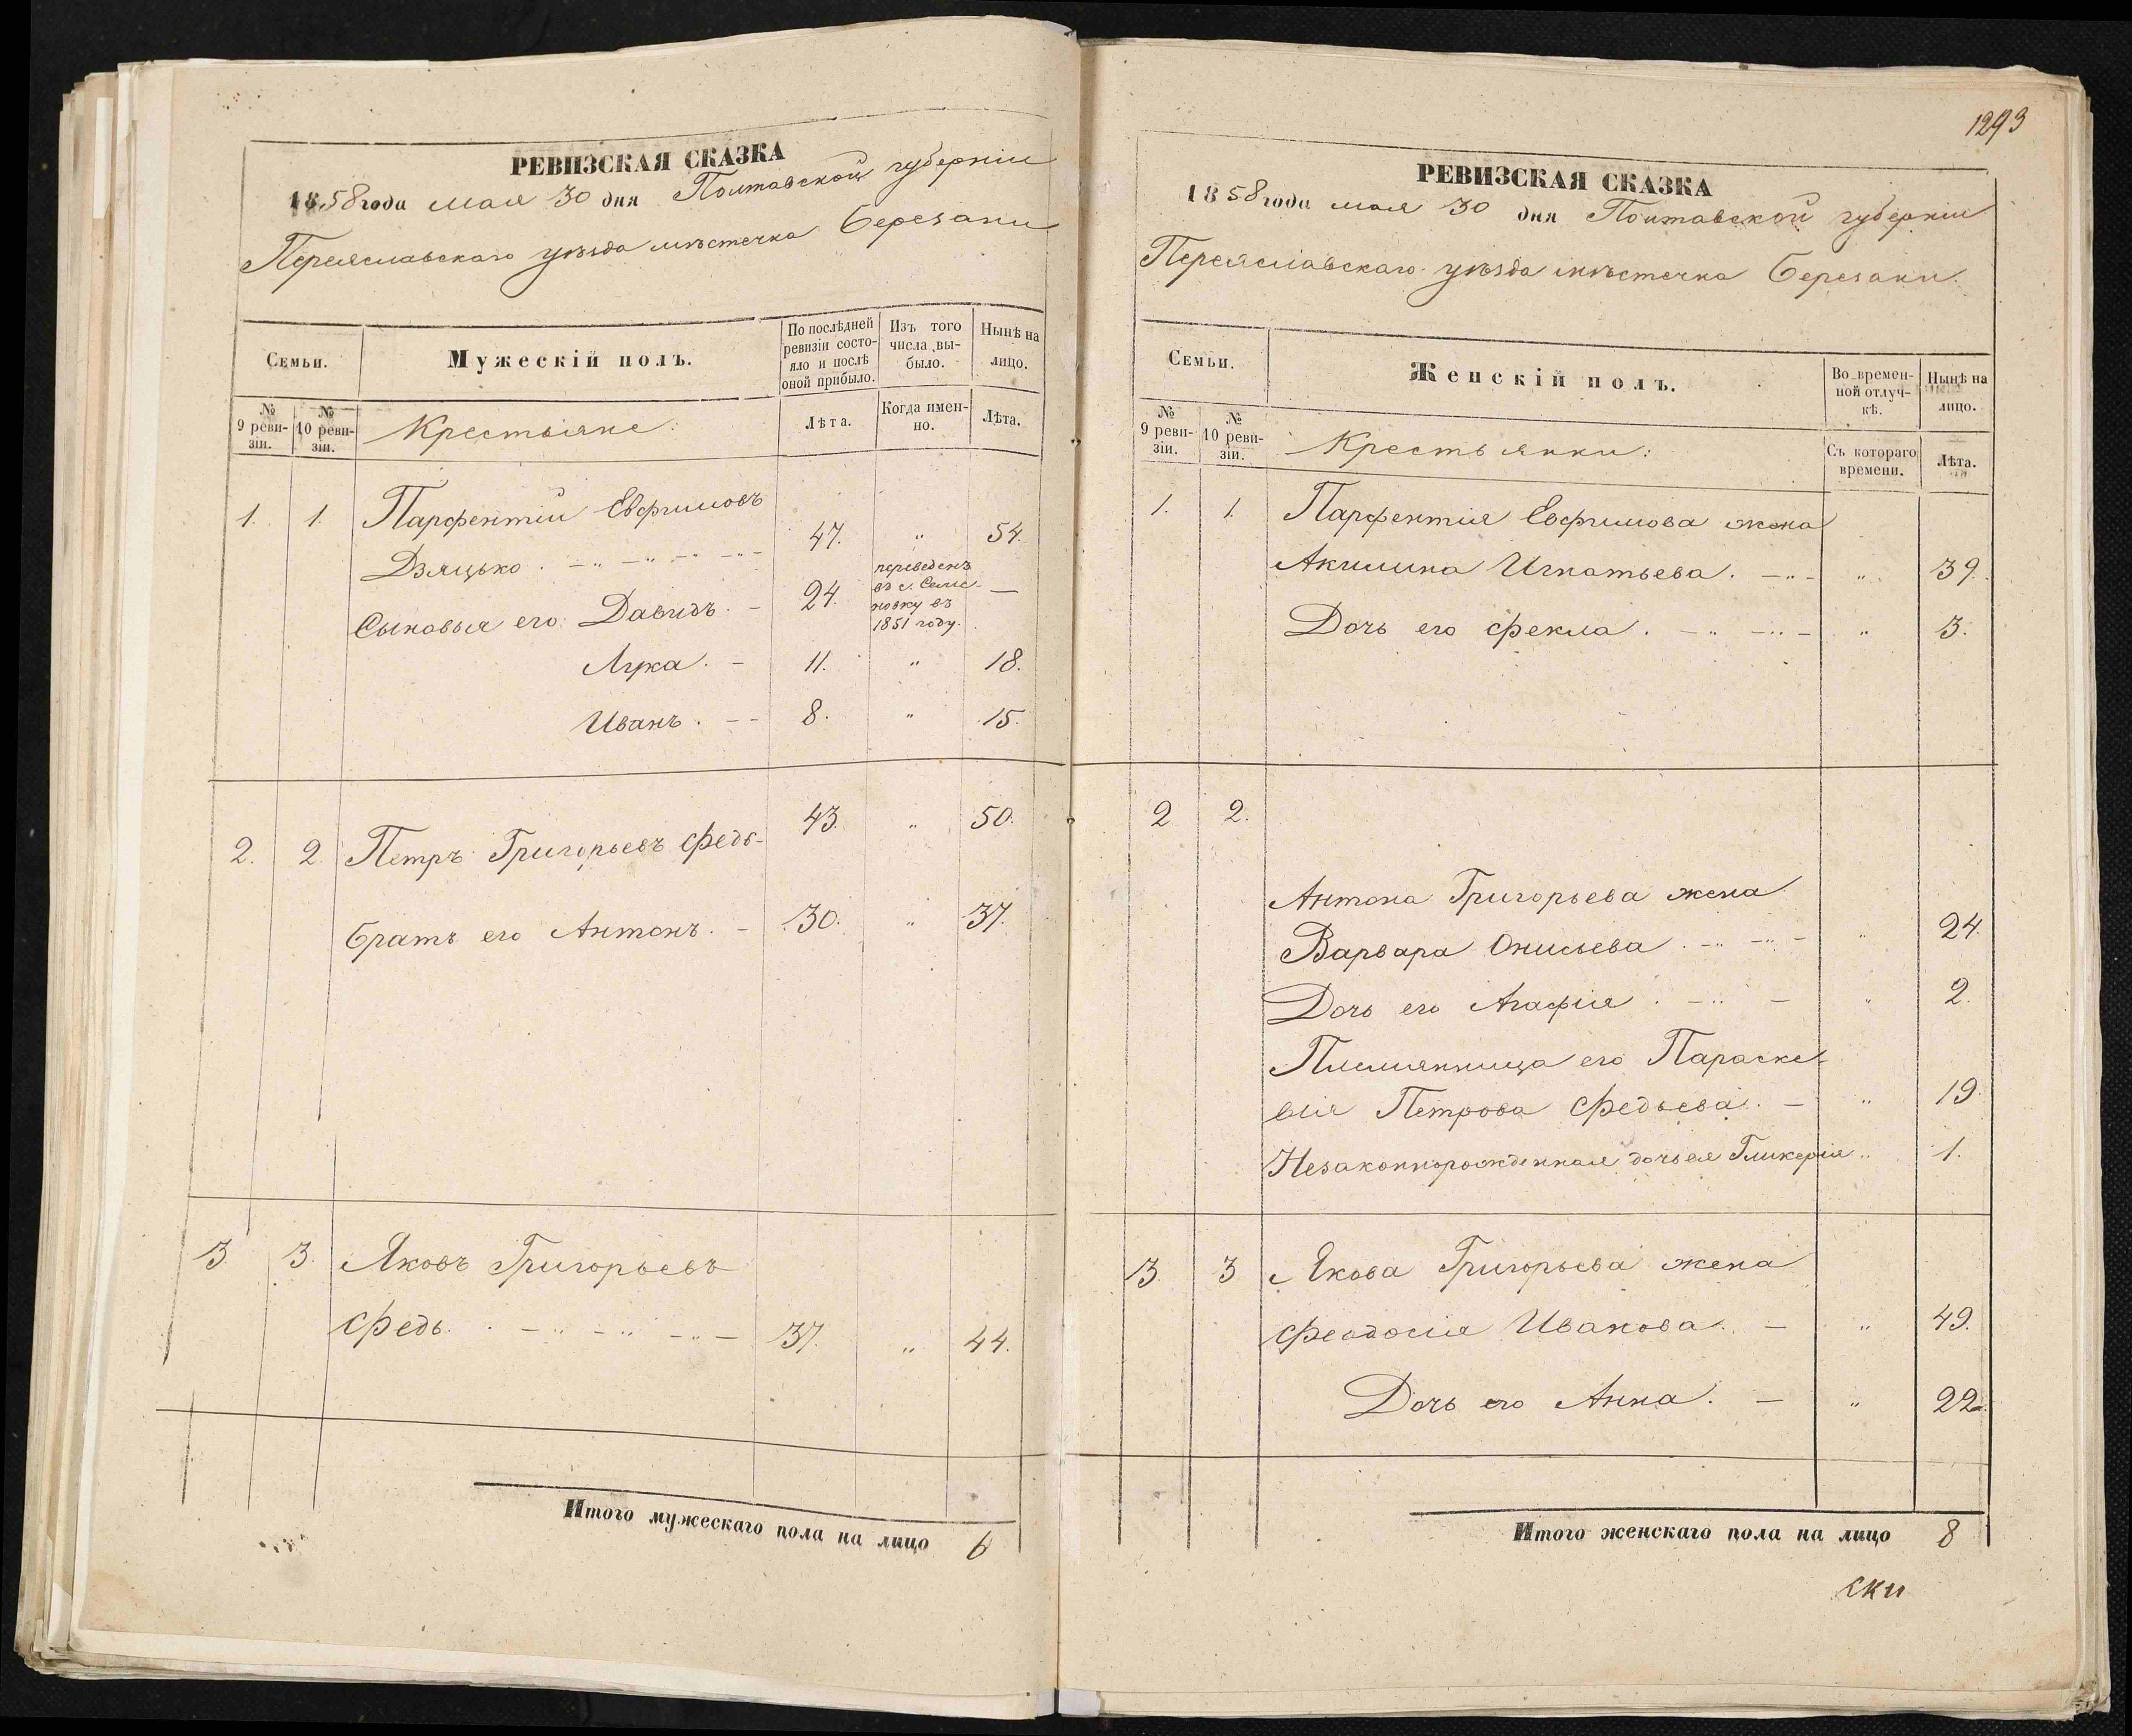 РЕВИЗСКАЯ СКАЗКА
1858 года мая 30 дня Полтавской губерніи
Переяславскаго уѣзда мѣстечка Березани
Семьи.
Мужескій полъ.
По послѣдней ревизіи состояло и послѣ оной прибыло.
Изъ того числа выбыло.
Нынѣ на лицо.
№ 9 ревизіи.
№ 10 ревизіи.
Крестьяне:
Лѣта.
Когда именно.
Лѣта.
1. 1. Парфентій Евфимовъ
Дзяцько . 47. „ 54.
Сыновья его: Давидъ. 24. переведенъ въ с. Семеновку въ 1851 году. —
Лука. 11. „ 18.
Иванъ. 8. „ 15.
2. 2. Петръ Григорьевъ Федь- 43. „ 50.
Братъ его Антонъ. 30. „ 37.
3. 3. Яковъ Григорьевъ
Федь. 37. „ 44.
Итого мужескаго пола на лицо 6
1293
РЕВИЗСКАЯ СКАЗКА
1858 года мая 30 дня Полтавской губерніи
Переяславскаго уѣзда мѣстечка Березани.
Семьи.
Женскій полъ.
Во временной отлучкѣ.
Нынѣ на лицо.
№ 9 ревизіи.
№ 10 ревизіи.
Крестьянки:
Съ котораго времени.
Лѣта.
1. 1. Парфентія Евфимова жена
Акилина Игнатьева. „ 39.
Дочь его Фекла. „ 3.
2 2.
Антона Григорьева жена
Варвара Онисьева. „ 24.
Дочь его Агафія. „ 2.
Племянница его Параске-
вія Петрова Федьева. „ 19.
Незаконнорожденная дочь ея Гликерія „ 1.
3 3 Якова Григорьева жена
Феодосія Иванова. „ 49.
Дочь его Анна. „ 22.
Итого женскаго пола на лицо 8
ски